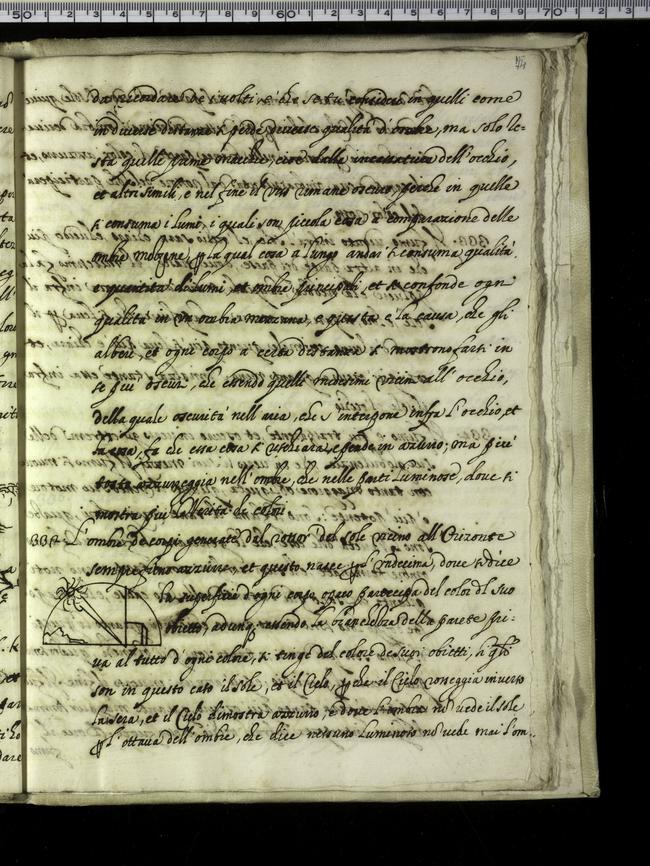 da ricordare de i volti, è che se tu consideri in quelli come
in diverse distanze si perde diverse qualità d'ombre, ma solo re=
sta quelle prime macchie, cioè dalle incassature dell'occhio,
et altri simili, e nel fine il viso rimane oscuro, perche in quelle
si consuma i lumi, i quali son piccola cosa a comparazione delle
ombre mezzane, la qual cosa a lungo andar si consuma qualità,
e quantità di lumi, et ombre principali, et si confonde ogni
qualità in un ombra mezzana, e questa è la causa, che gli
alberi, et ogni corpo a certa distanza si mostrono farsi in
se più oscuri, che essendo quelli medesimi vicini all'occhio,
della quale oscurità nell'aria, che s'interpone infra l'occhio, et
la cosa, fa che essa cosa si rischiara, e pende in azzuro; ma più
tosto azzurreggia nell'ombre, che nelle parti luminose, dove si
mostra più la verità de colori
332 L'ombre de corpi generate dal rossor del sole vicino all'Orizonte
sempre fieno azzurre, et questo nasce l'undecima, dove si dice
la superficie d'ogni corpo opaco partecipa del color dl suo
obietto, adunq. essendo la bianchezza della parete pri=
va al tutto d'ogni colore, si tinge dal colore de suoi obietti, li qli
son in questo caso il sole, et il Cielo, che il Cielo rosseggia inverso
la sera, et il Cielo dimostra azzurro, e dove l'ombra nō vede il sole
l'ottava dell'ombre, che dice nessuno luminoso nō vede mai l'om: